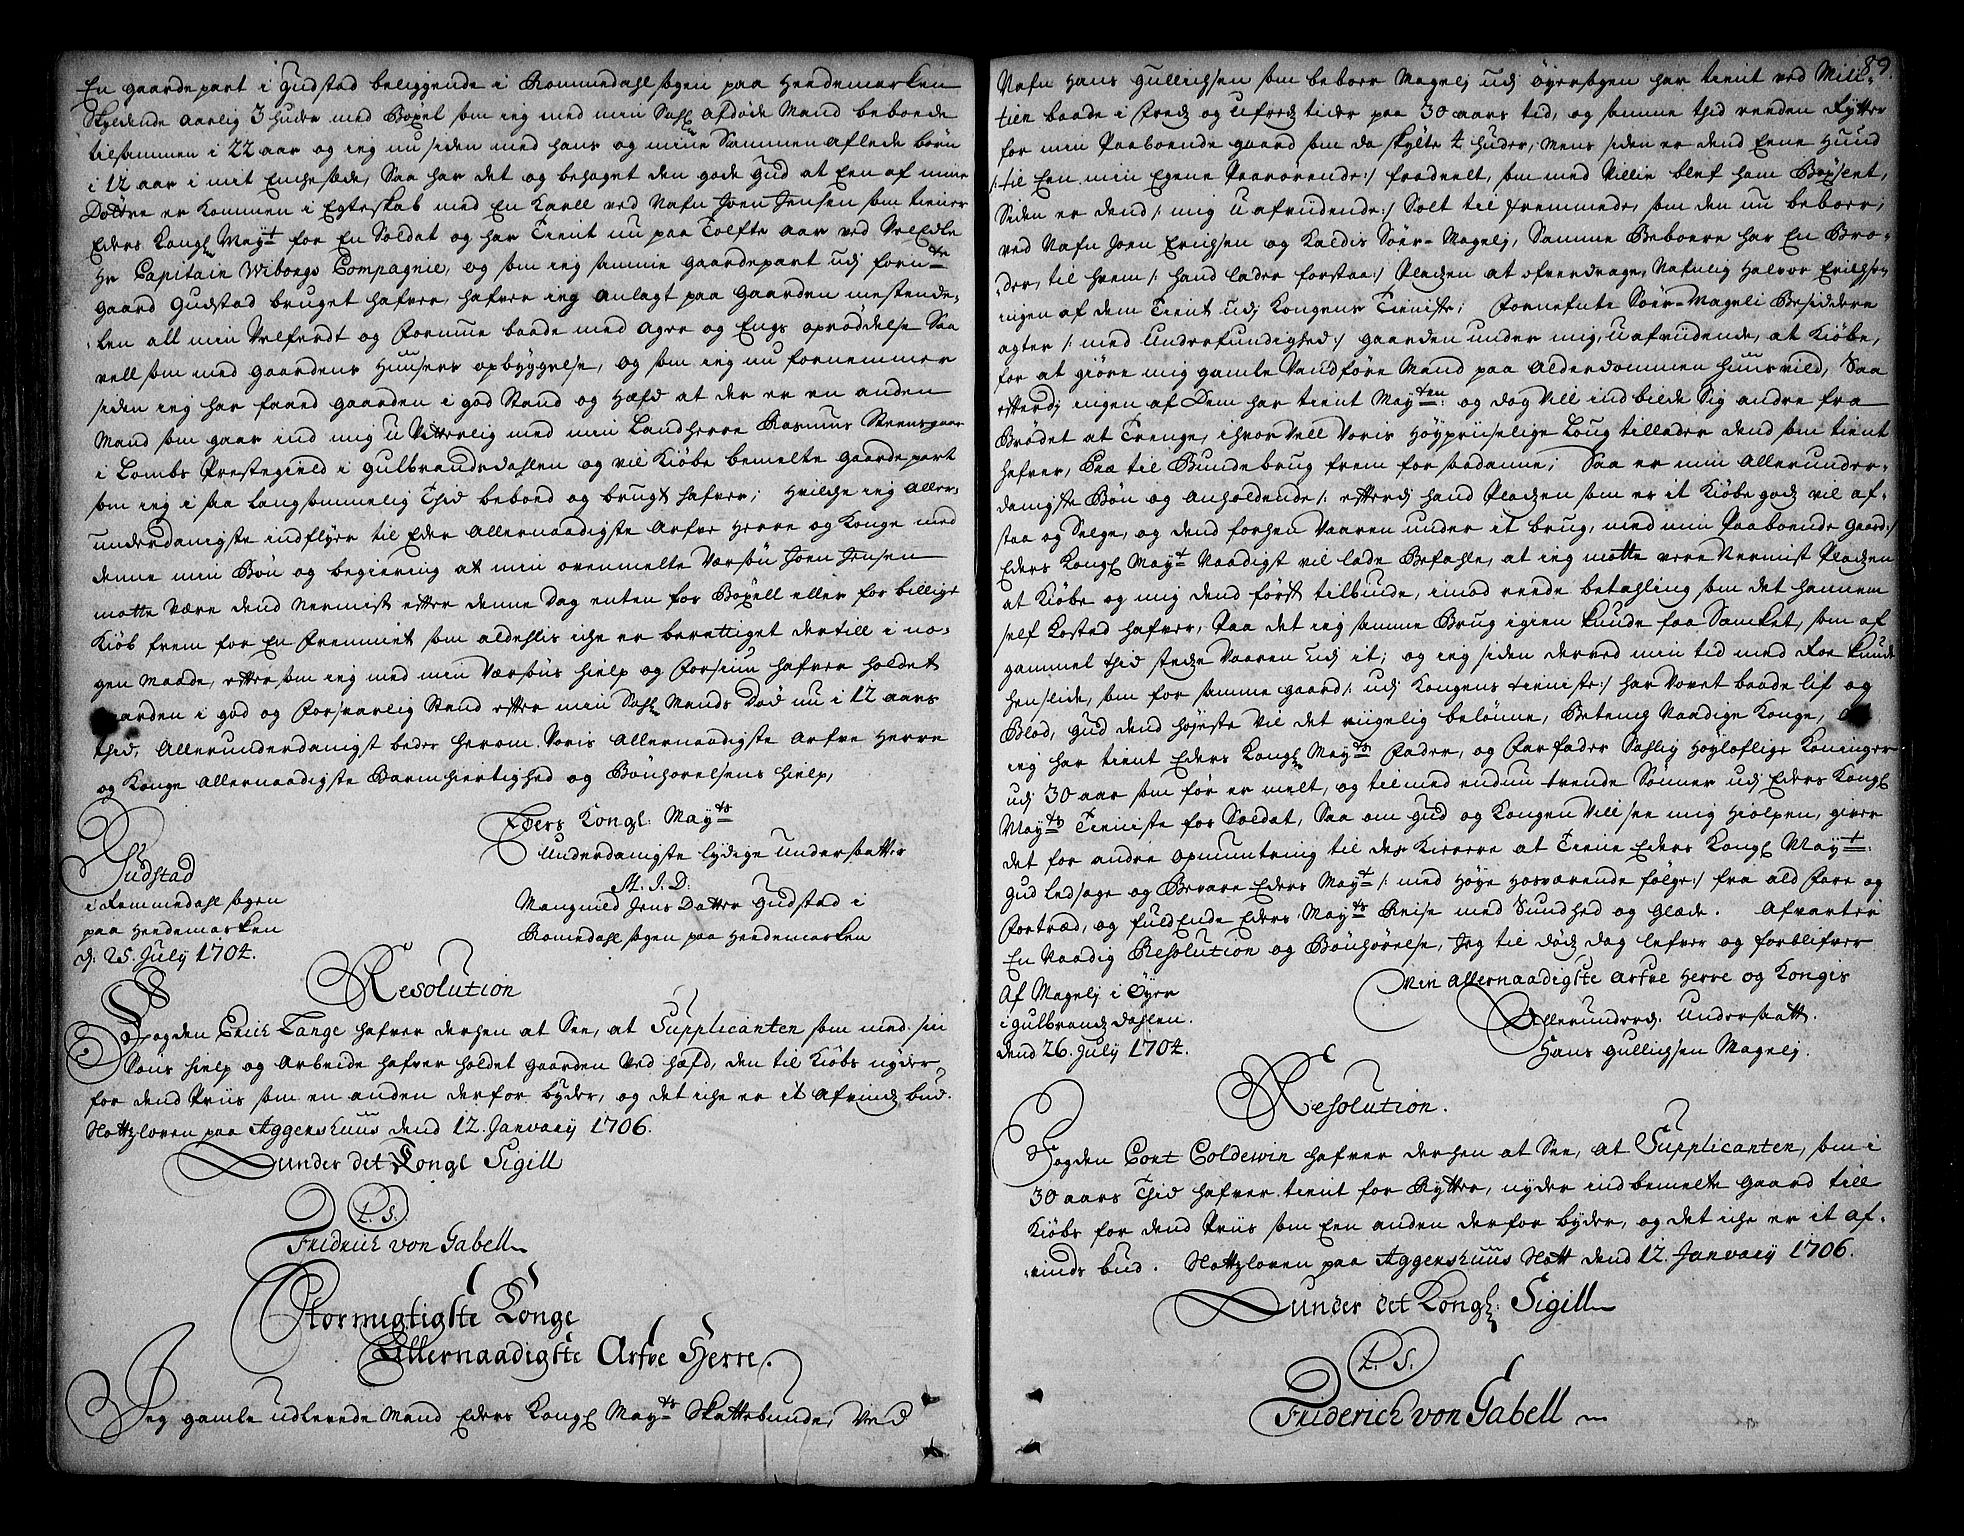 En gaardepart i Gudstad beliggende i Rommedahl sogen paa Heedemarken
Skyldende aarlig 3 huder med Boxel som ieg med min Sahl afdøde Mand beboede
tilsammen i 22 aar og ieg nu siden med hans og mine Sammen aflede børn
i 12 aar i mit Enchesæde, Saa har det og behaget den gode Gud at Een af mine
Døttre er kommen i Egteskab med En Karll ved Nafn Joen Jensen som tiener
Eders Kongl May:t for En Soldat og har Tient nu paa Tolfte aar ved VelEdle
Hr Capitain Wibongs Compagnie, og som ieg samme gaardepart udj forn:te
gaard Gudstad bruget hafver, hafver ieg anlagt paa Gaarden mestende-
len all min Velferdt og Formue baade med ager og Engs oprøddelse Saa
vell som med gaardens Huusers opbyggelse, og som ieg nu fornemmer
siden ieg har faaed gaarden i god Stand og Hæfd at der er en anden
Mand som gaar ind mig u Vitterlig med min Landherre Rasmus
i Lombs Prestegield i Gulbrandsdahlen og vil Kiøbe bemelte gaardepart
som ieg i saa langsommelig Thid beboed og brugt hafver; Hvilche ieg aller-
underdanigste indflyer til Eder Allernaadigste Arfve Herre og Konge med
denne min Bøn og begiering at min ovenmelte Versøn Joen Jensen
motte være dend nermist efter denne Dag enten for Boxell eller for billigt
Kiøb frem for En Fremmet som aldehlis iche er berettiget dertill i no-
gen maade, efter som ieg med min Versøns hielp og Forsiun hafver holdet
Gaarden i god og forsvarlig Stand efter min Sahl Mands Død nu i 12 aars
thid, Allerunderdanigst beder herom Voris Allernaadigste Arfve Herre
og Konge Allernaadigste Barmhiertighed og Bønhørelsens hielp,
Eders Kongl: May:ts
Underdanigste lydige Undersaatter
M. J. D:
Gudstad
i Rommedahl sogen
paa Heedemarken
d: 25. July 1704.
Mangnild Jens Datter Gudstad i
Romedahl sogen paa Heedemarken
Resolution
Fogden Erich Lange hafver derhen at See, at Supplicanten som med sin
Søns hielp og Arbeide hafver holdet gaarden ved hæfd, den til Kiøbs nyder
for dend Priis som en anden derfor byder, og det iche er it Afvinds bud.
Slottzloven paa Aggershuus dend 12. January 1706.
Under det Kongl Sigill
L. S.
Fridrich von Gabell
Stormegtigste Konge
Allernaadigste Arfve Herre.
Jeg gamle udlevede Mand Eders Kongl May:ts Skattebunde, Ved
89.
Nafn Hans Gullichsen som beboer Magelj udj Øyersogen har tient ved Mili-
tien baade i Freds og Ufreds tider paa 30 aars tid, og samme thid reeden Rytter
for min Paaboende gaard som da skylte 4 huder, Mens siden er dend Eene Huud
/: til Een min Egene Paarørende :/ fradeelt, som med Villie blef ham Boxlet,
Siden er dend /: mig uafvidende :/ Solt til fremmede, som den nu beboer,
ved Nafn Joen Erichsen og Kaldis Søer-Magelj, Samme Beboere har En Bro-
der, til hvem /: hand lader forstaa :/ Pladzen at ofverdrage, Nafnlig Halvor Erichsøn
ingen af dem Tient udj Kongens Tieniste; Fornefnte Søer-Magelj Besiddere
agter /: med Underfundighed :/ gaarden under mig, uafvidende, at Kiøbe,
for at giøre mig gamle Vandføre Mand paa Alderdommen huusvild, Saa
efterdj ingen af Dem har tient May:ten og dog Vill indbilde Sig andre fra
Brødet at Trenge, ihvor Vell Voris Høypriiselige Loug tillader dend som tient
hafver, Præ til Bundebrug frem for saadanne; Saa er min Allerunder-
danigste Bøn og anholdende /: efterdj hand Pladzen som er it Kiøbe godz vil af-
staa og Selge, og dend forhen Vaaren under it brug, med min Paaboende Gaard :/
Eders Kongl May:t Naadigst vil lade Befahle, at ieg motte vere Nermist Pladzen
at Kiøbe og mig dend først tilbinde, imod reede betahling som det hannem
self Kosted hafver, Paa det ieg samme Brug igien kunde faa Samlet, som af
gammel thid stedze Vaaren udj it; og ieg siden derved min tid med Roe kunde
henslide, som for samme gaard /: udj Kongens tieniste :/ har Vovet baade lif og
Blod, Gud dend høyeste vil det riigelig belønne, Betench Naadige Konge, at
ieg har tient Eders Kongl May:ts Fader, og Farfader Sahlig Høyloflige Koninger
udj 30 aar som før er melt, og til med endnu trende Sønner udj Eders Kongl
May:ts Tieniste for Soldat, Saa om Gud og Kongen Vill see mig hiolpen, giver
det for andre opmuntring til des Kierere at Tiene Eders Kongl May:t:
Gud ledsage og Bevare Eders May:t /: med Høye Hosværende følge :/ fra ald Fare og
Fortræd, og fuldende Eders May:ts Reise med Sundhed og Glæde. Afvarter
En Naadig Resolution og Bønhørelse, Jeg til dødz dag lefver og forblifver
Min Allernaadigste Arfve Herre og Kongis
Af Magelj i Øyer
i Gulbrandz dahlen.
dend 26. July 1704.
Allerunderd. Undersaatt.
Hans Gullichsen Magelj.
Resolution.
Fogden Cort Coldewin hafver derhen at See, at Supplicanten, som i
30 aars Thid hafver tient for Rytter, nyder indbemelte Gaard till
Kiøbs for dend Priis som Een anden derfor byder, og det iche er it af-
vinds bud. Slottzloven paa Aggershuus Slott dend 12. January 1706.
Under det Kongl: Sigill
L. S.
Friderich von Gabell